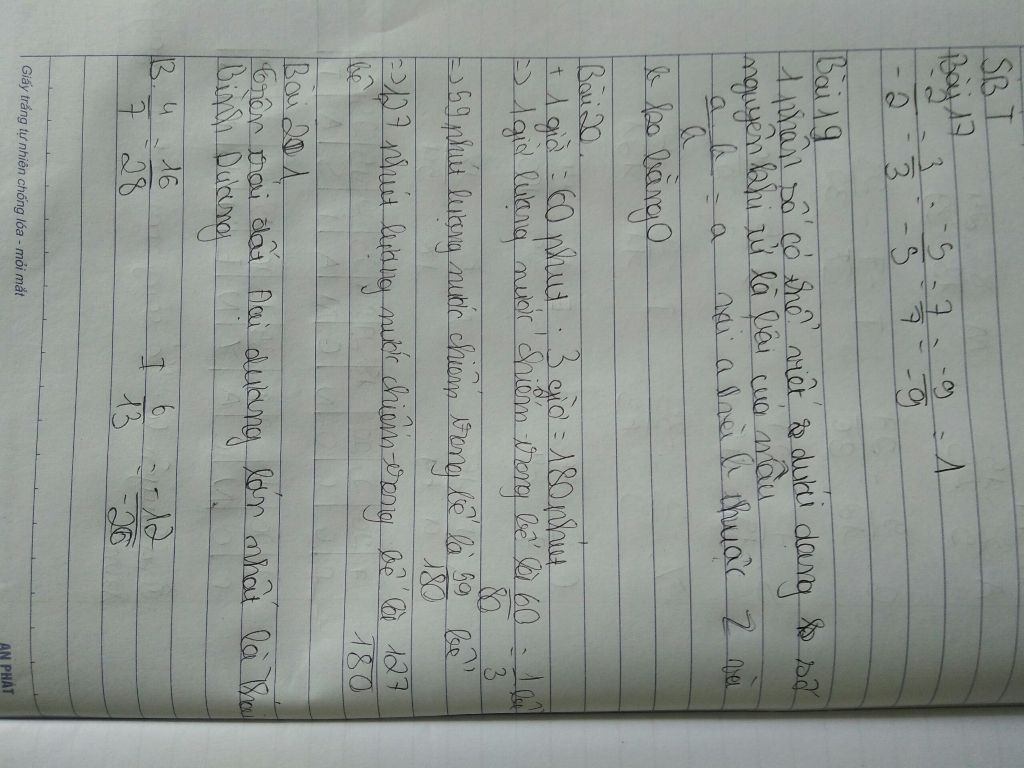 SBT
Bài 17
-2/-2 = 3/3 = -5/-5 = 7/7 = -9/-9 = 1
Bài 19
1 phân số có thể viết dưới dạng số
nguyên khi tử là bội của mẫu
a.k/a = a với a và k thuộc Z và
k \# 0
Bài 20.
+ 1 giờ = 60 phút. 3 giờ = 180 phút
=> 1 giờ lượng nước chiếm trong bể là 60/180 = 1/3 bể
=> 59 phút lượng nước chiếm trong bể là 59/180 bể
=> 127 phút lượng nước chiếm trong bể là 127/180
bể
Bài 21
trên trái đất Đại dương lớn nhất là Thái
Bình Dương
B. 4/7 = 16/28
I 6/13 = -12/-26
Giấy trắng tự nhiên chống lóa - mỏi mắt
AN PHÁT